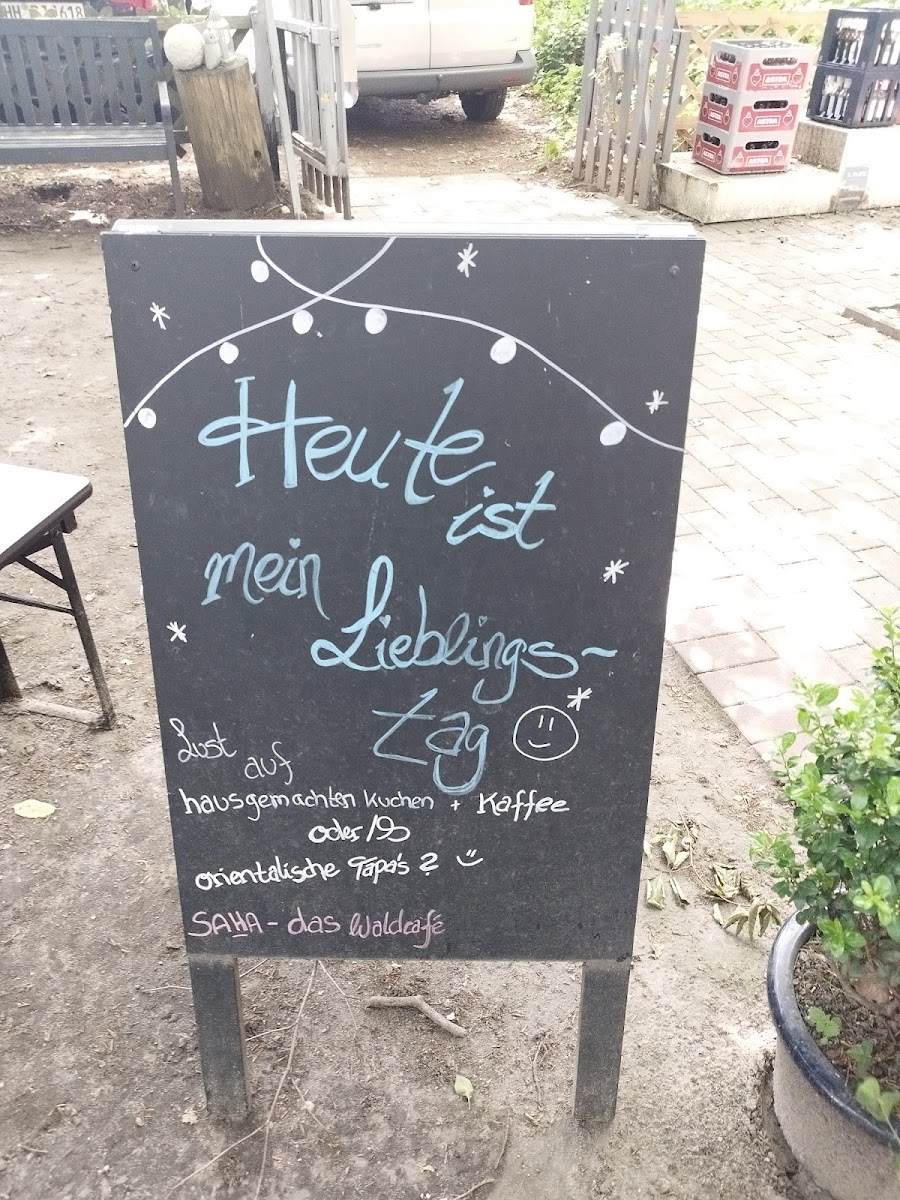 Heute
ist
mein
Lieblings-
tag
Lust
auf
hausgemachten Kuchen + Kaffee
oder
orientalische Tapa's ?
SAHA - das Waldcafé
ASTRA
ASTRA
ASTRA